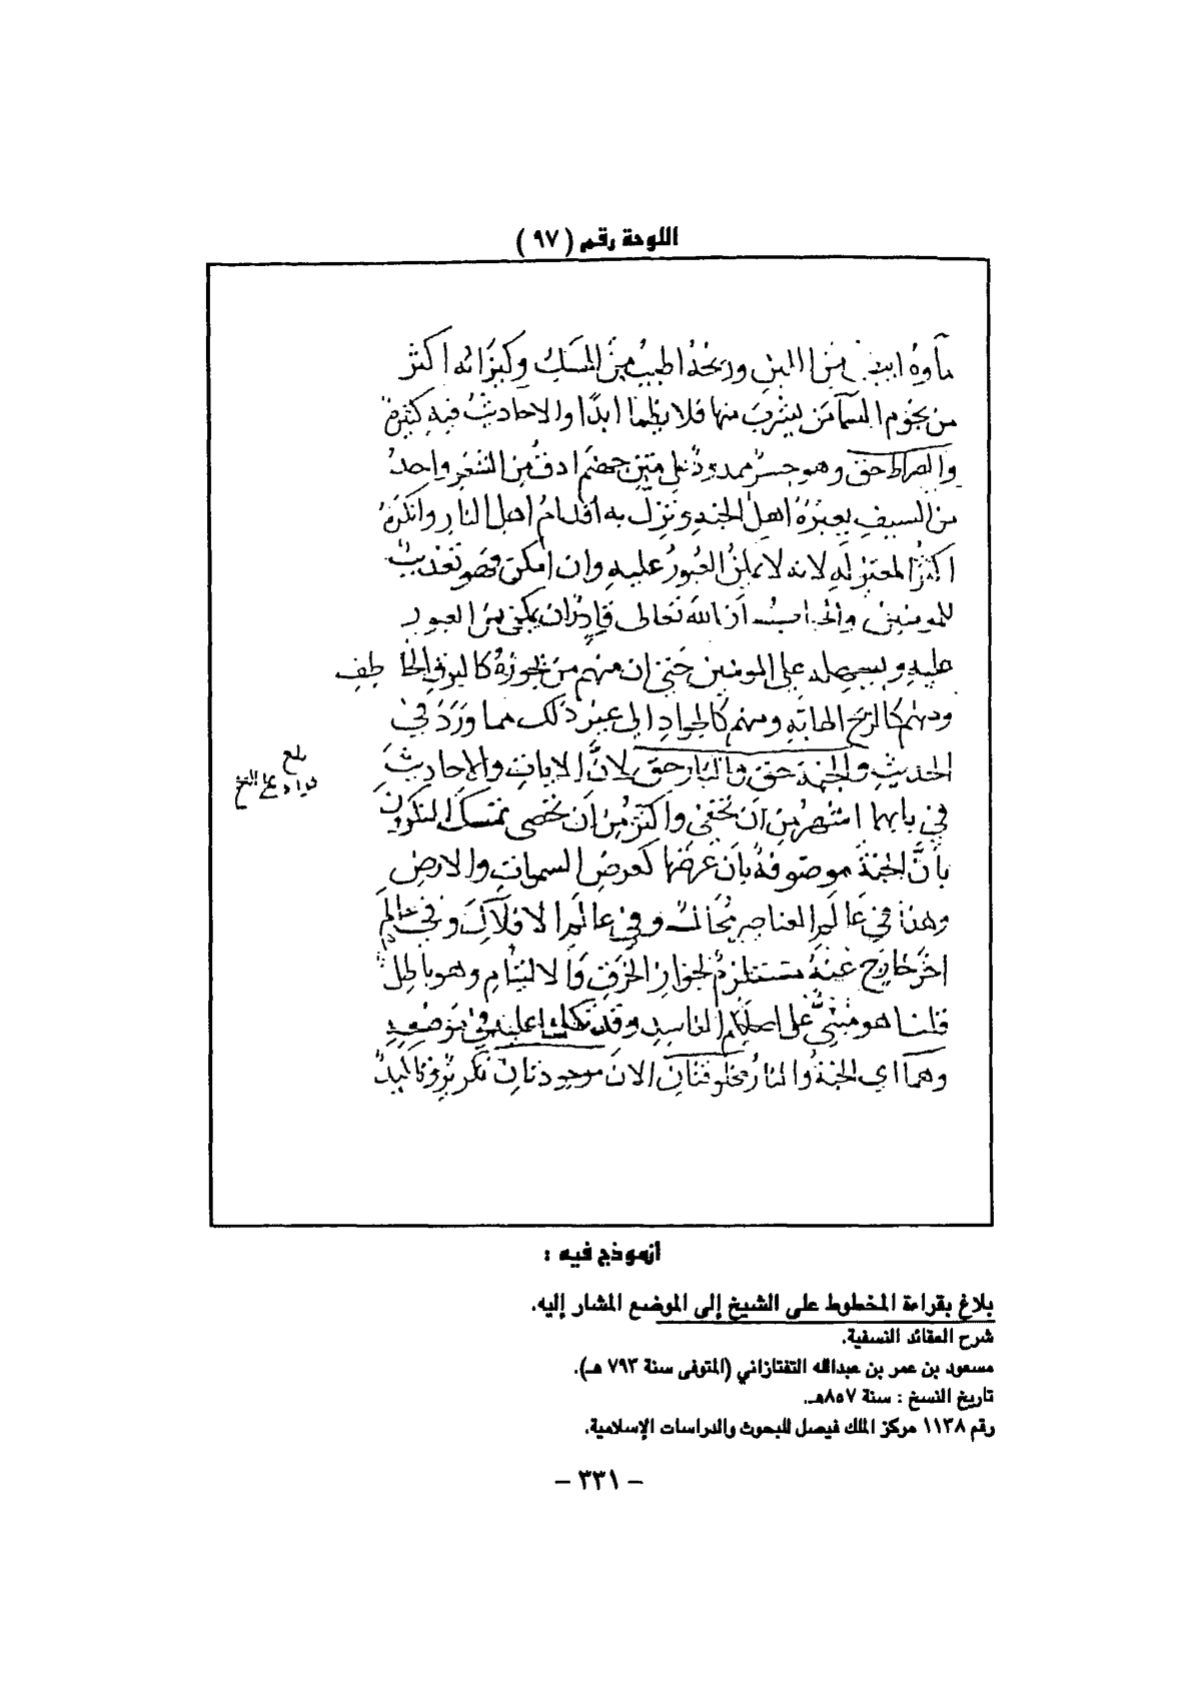 اللوحة رقم ( ٩٧ )
ماوه ابيض من اللبن وريحه اطيب من المسك وكيزانه اكثر
من نجوم السما من يشرب منها فلا يظما ابدا والاحاديث فيه كثيرة
والصراط حق وهو جسر ممدود على متن جهنم ادق من الشعر واحد
من السيف يعبره اهل الجنة وتزل به اقدام اهل النار وانكره
اكثر المعتزله لانه لا يمكن العبور عليه وان امكن فهو تعذيب
للمومنين والجواب ان الله تعالى قادر ان يمكن من العبور
عليه ويسهله على المومنين حتى ان منهم من يجوزه كالبرق الخاطف
ومنهم كالريح الهابه ومنهم كالجواد الى غير ذلك مما ورد في
الحديث والجنة حق والنار حق لان الايات والاحاديث
في بابهما اشهر من ان تخفى واكثر من ان تحصى تمسك المنكرون
بان الجنة موصوفة بان عرضها كعرض السموات والارض
وهذا في عالم العناصر محال وفي عالم الافلاك وفي عالم
اخر خارج عنه مستلزم لجواز الخرق والالتيام وهو باطل
قلنا هو مبني على اصلكم الفاسد وقد تكلمنا عليه في موضعه
وهما اي الجنة والنار مخلوقتان الان موجودتان تكرير وتاكيد
بلغ
قراءة على الشيخ
أنموذج فيه :
بلاغ بقراءة المخطوط على الشيخ إلى الموضع المشار إليه.
شرح العقائد النسفية.
مسعود بن عمر بن عبدالله التفتازاني (المتوفى سنة ٧٩٣ هـ).
تاريخ النسخ : سنة ٨٥٧هـ.
رقم ١١٣٨ مركز الملك فيصل للبحوث والدراسات الإسلامية.
– ٣٣١ –